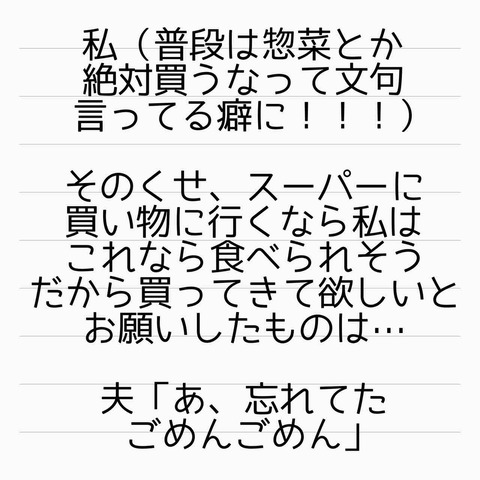 私（普段は惣菜とか
絶対買うなって文句
言ってる癖に！！！）
そのくせ、スーパーに
買い物に行くなら私は
これなら食べられそう
だから買ってきて欲しいと
お願いしたものは…
夫「あ、忘れてた
ごめんごめん」